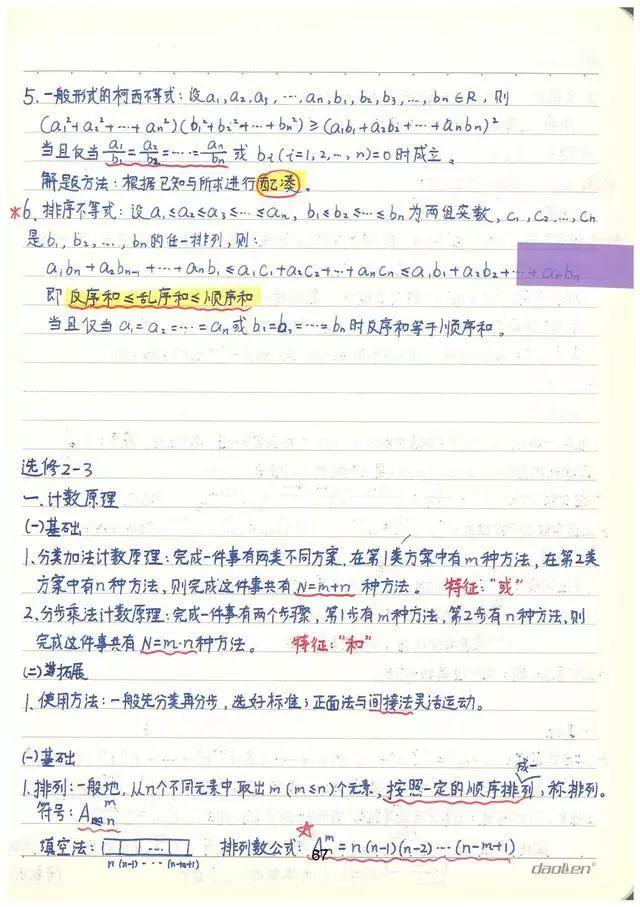 5、一般形式的柯西不等式：设a₁,a₂,a₃,…,aₙ,b₁,b₂,b₃,…,bₙ∈R，则
(a₁²+a₂²+…+aₙ²)(b₁²+b₂²+…+bₙ²)≥(a₁b₁+a₂b₂+…+aₙbₙ)²
当且仅当a₁/b₁=a₂/b₂=…=aₙ/bₙ或bᵢ(i=1,2,…,n)=0时成立。
解题方法：根据已知与所求进行配凑。
*6、排序不等式：设a₁≤a₂≤a₃≤…≤aₙ，b₁≤b₂≤…≤bₙ为两组实数，c₁,c₂…,cₙ
是b₁,b₂,…,bₙ的任一排列，则：
a₁bₙ+a₂bₙ₋₁+…+aₙb₁≤a₁c₁+a₂c₂+…+aₙcₙ≤a₁b₁+a₂b₂+…+aₙbₙ
即反序和≤乱序和≤顺序和
当且仅当a₁=a₂=…=aₙ或b₁=b₂=…=bₙ时反序和等于顺序和。
选修2-3
一、计数原理
(一)基础
1、分类加法计数原理：完成一件事有两类不同方案，在第1类方案中有m种方法，在第2类
方案中有n种方法，则完成这件事共有N=m+n种方法。 特征："或"
2、分步乘法计数原理：完成一件事有两个步骤，第1步有m种方法，第2步有n种方法，则
完成这件事共有N=m·n种方法。 特征："和"
(二)拓展
1、使用方法：一般先分类再分步，选好标准；正面法与间接法灵活运动。
(一)基础
成一
1、排列：一般地，从n个不同元素中取出m(m≤n)个元素，按照一定的顺序排列，称排列。
符号：Aₙᵐ
填空法：… n (n-1) … (n-m+1) 排列数公式：Aᵐ=n(n-1)(n-2)…(n-m+1)
67
daolien®